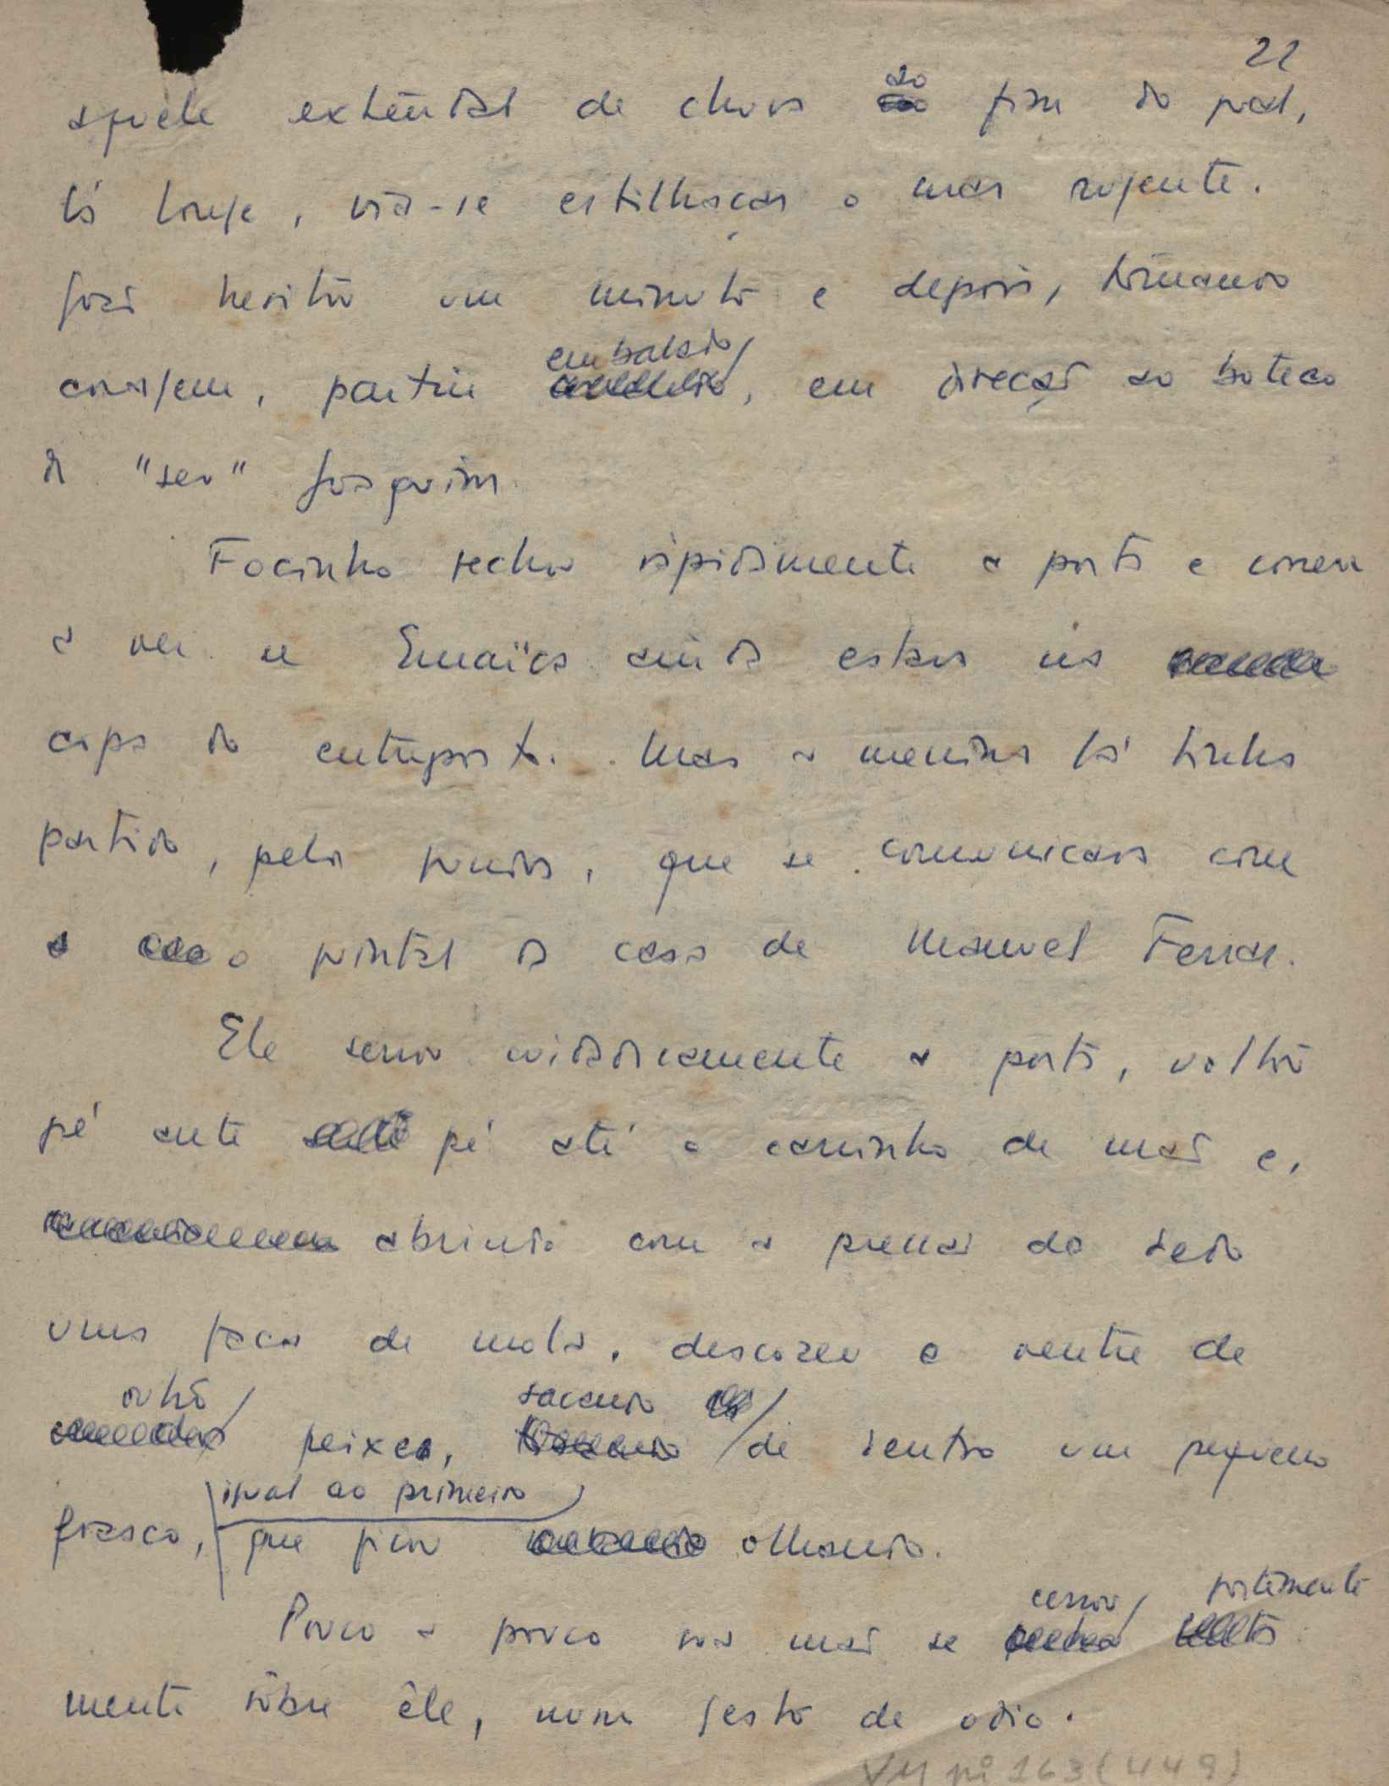 22
aquele extendal de chuva ao fim do qual,
lá longe, via-se estilhaçar o mar rugente.
João hesitou um minuto e depois, tomando
coragem, partiu embalado, em direção ao boteco
de "seu" Joaquim.
Focinho fechou rapidamente a porta e correu
a ver se Smaïca ainda estava na
capa do entreposto. Mas a menina já tinha
partido, pelos fundos, que se comunicava com
o quintal da casa de Manuel Ferrar.
Ele cerrou cuidadosamente a porta, voltou
pé ante pé até o carrinho de mão e,
abrindo com a pressão do dedo
uma faca de mola, descozeu o ventre de
outro peixe, sacando de dentro um pequeno
frasco, igual ao primeiro que ficou olhando.
Pouco a pouco sua mão se cerrou fortemente
mente sôbre êle, num gesto de odio.
VM pi 163 (449)